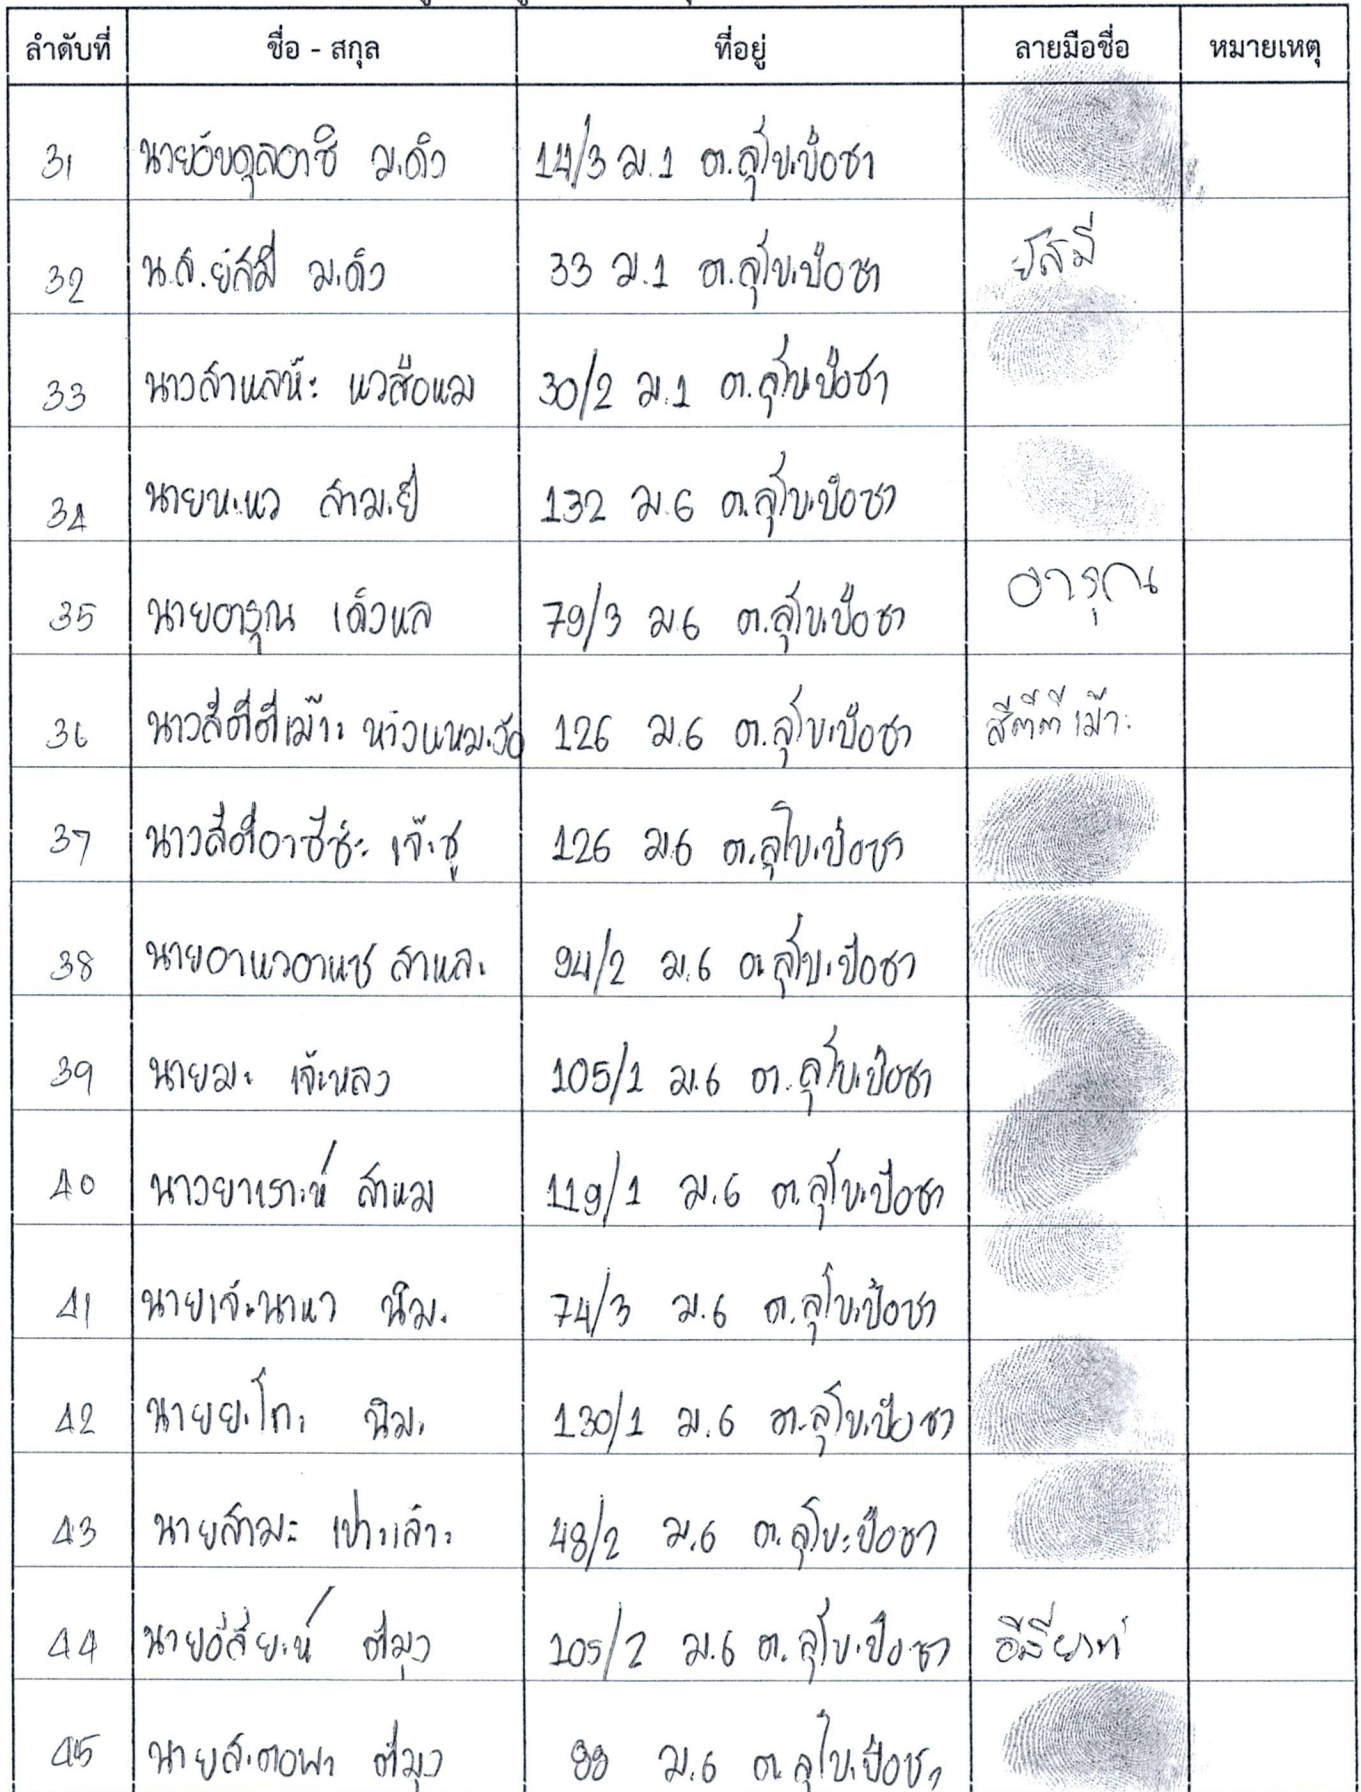 ลำดับที่ ชื่อ - สกุล ที่อยู่ ลายมือชื่อ หมายเหตุ
31 นายอับดุลอาซิ มะดิง 14/3 ม.1 ต.ลุโบะบือซา
32 น.ส.ยัสมี มะดิง 33 ม.1 ต.ลุโบะบือซา ยัสมี
33 นางสาหลีห๊ะ แวสือแม 30/2 ม.1 ต.ลุโบะบือซา
34 นายหะแว สามะยี 132 ม.6 ต.ลุโบะบือซา
35 นายอารุณ เด็งแล 79/3 ม.6 ต.ลุโบะบือซา อารุณ
36 นางสีตีตีเม๊าะ 126 ม.6 ต.ลุโบะบือซา สีตีตีเม๊าะ
37 นางสีตีอาซีซ๊ะ เจ๊ะซู 126 ม.6 ต.ลุโบะบือซา
38 นายอาแวอาแซ สาและ 94/2 ม.6 ต.ลุโบะบือซา
39 นายมะ เจ๊ะหลง 105/1 ม.6 ต.ลุโบะบือซา
40 นางยาเราะห์ สาแม 119/1 ม.6 ต.ลุโบะบือซา
41 นายเจ๊ะนาแว นิมะ 74/3 ม.6 ต.ลุโบะบือซา
42 นายยะโกะ นิมะ 130/1 ม.6 ต.ลุโบะบือซา
43 นายสามะ เปาะเล๊าะ 48/2 ม.6 ต.ลุโบะบือซา
44 นายอีลียะห์ ตีมุง 105/2 ม.6 ต.ลุโบะบือซา
45 นายสะตอพา ตีมุง ม.6 ต.ลุโบะบือซา